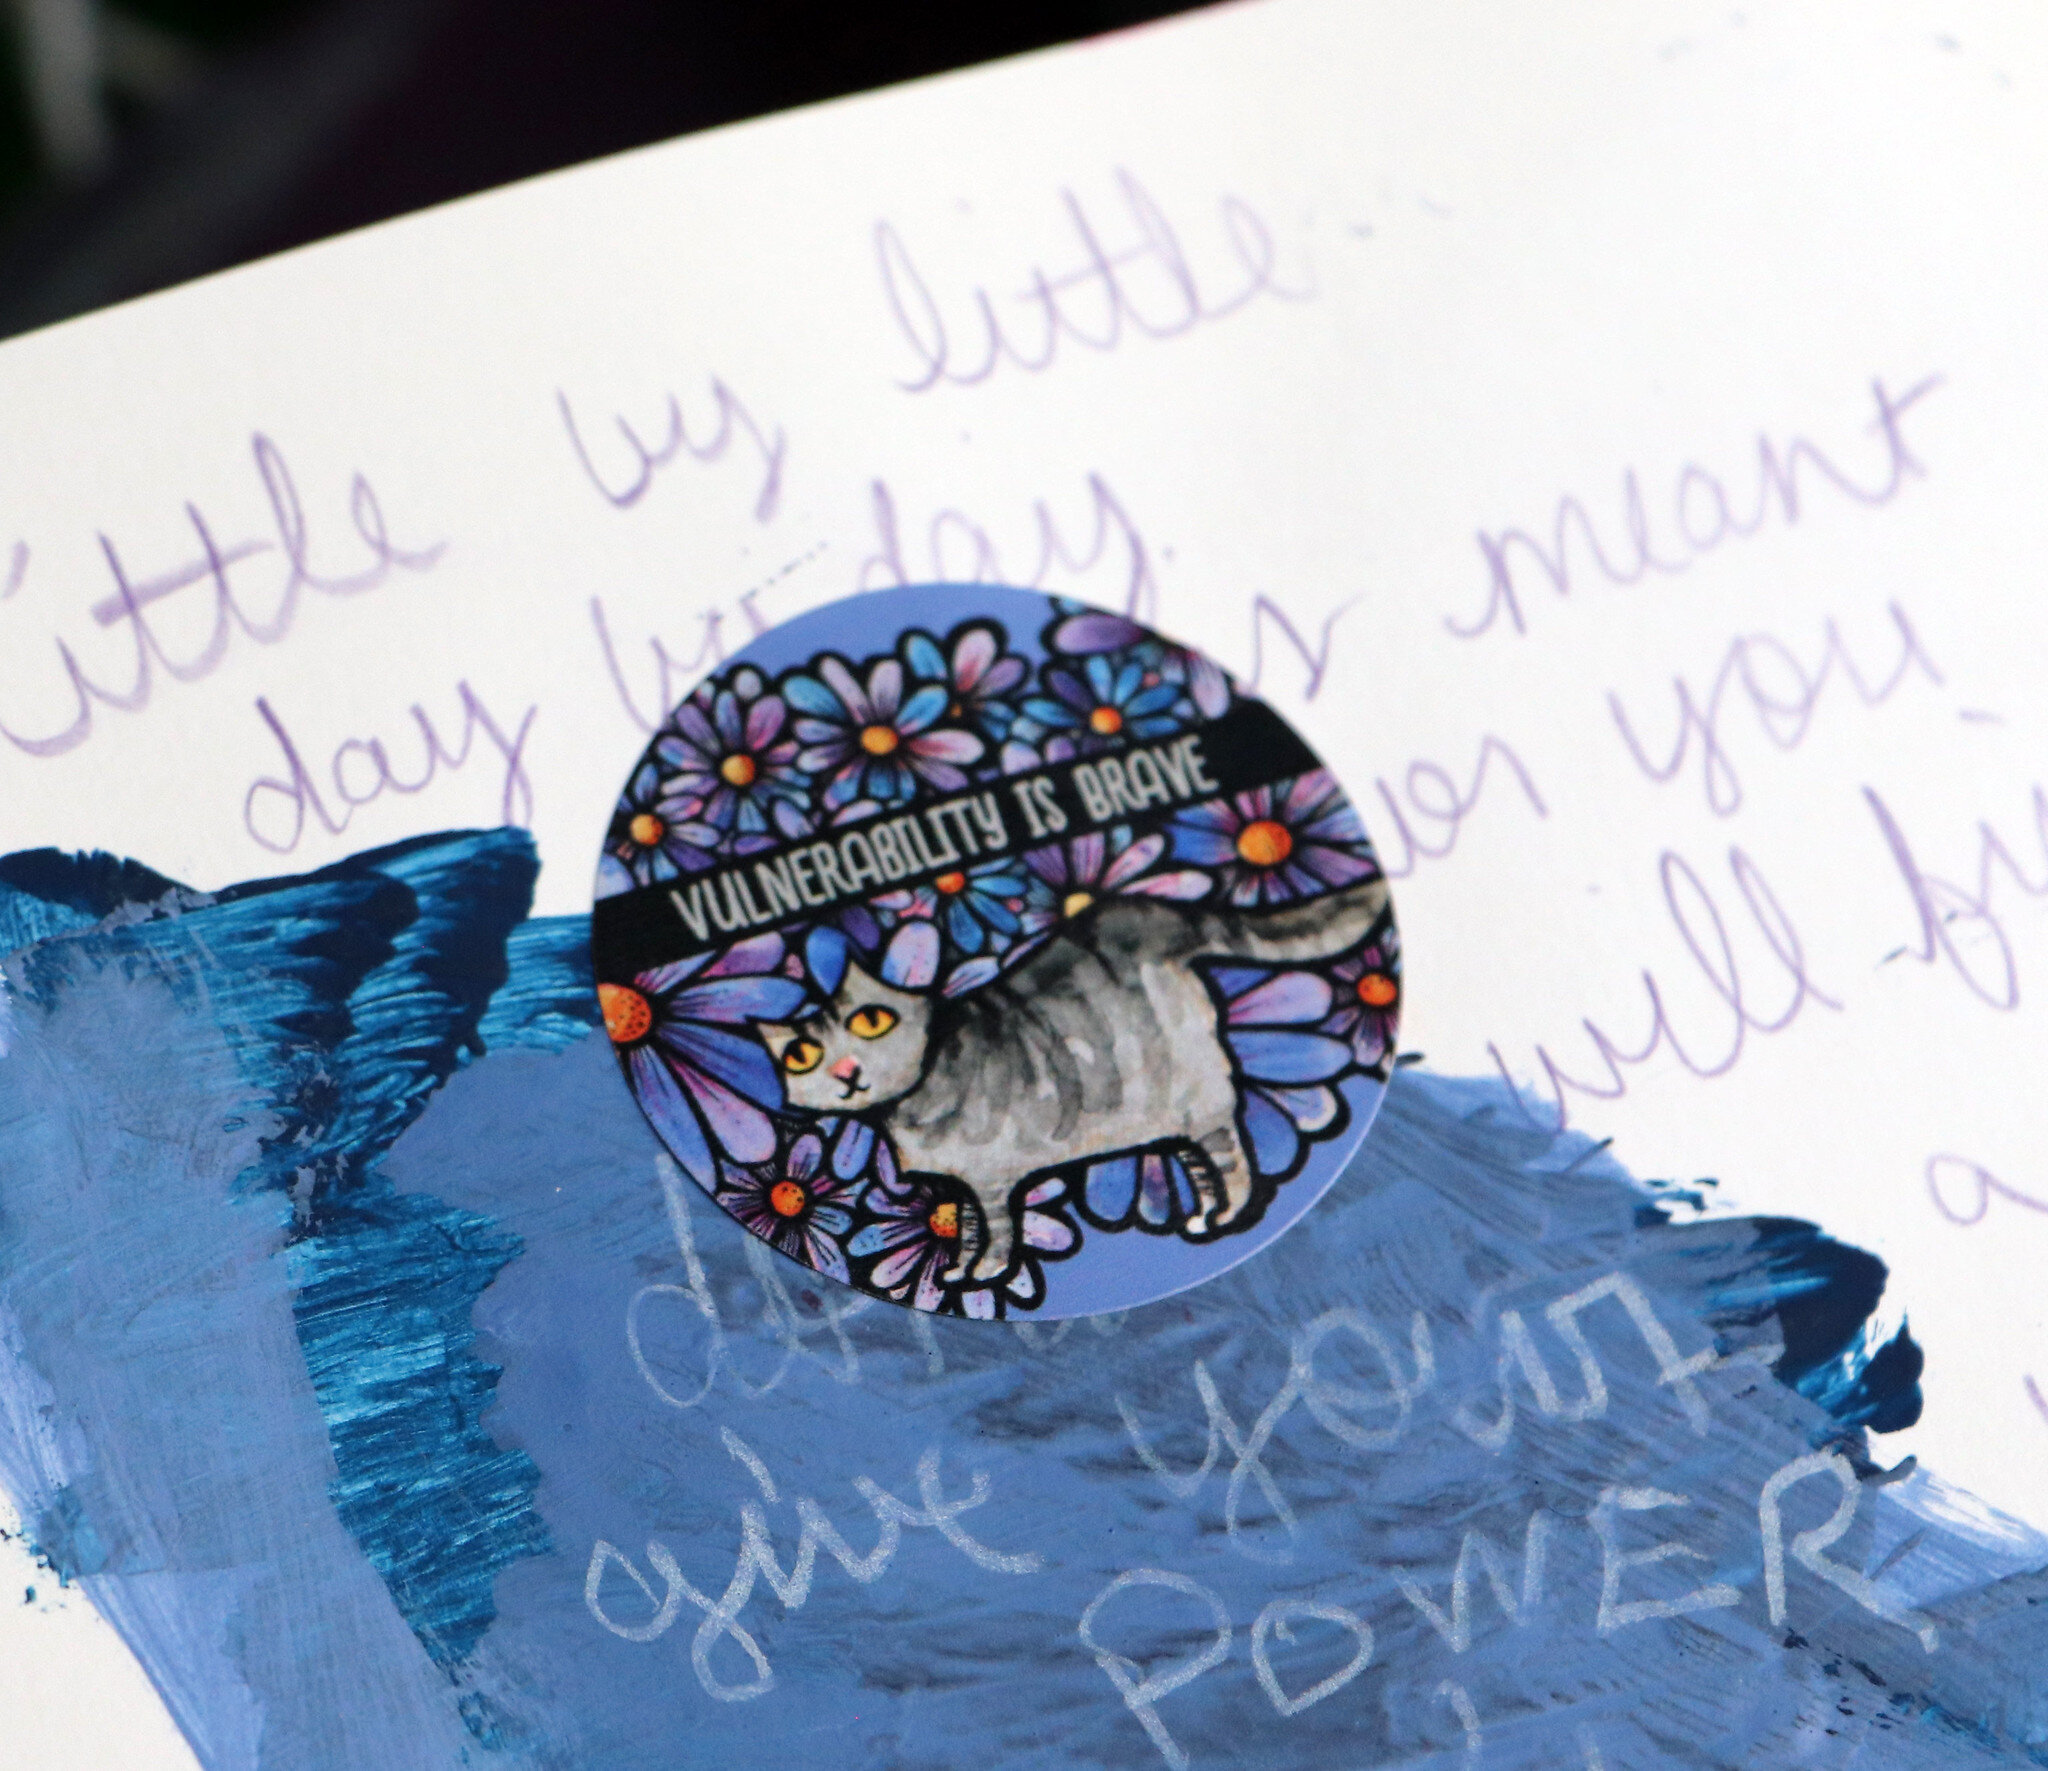 little by little...
day by day. is meant
for you
will find
VULNERABILITY IS BRAVE
give your
POWER